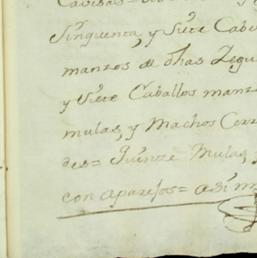 Cavezas =
Sinquenta, y Siete Cabe
manzos de dhas Yegu
y Siete Caballos manz
mulas, y Machos Cerr
des = Quinze Mulas,
con aparejos = asi m